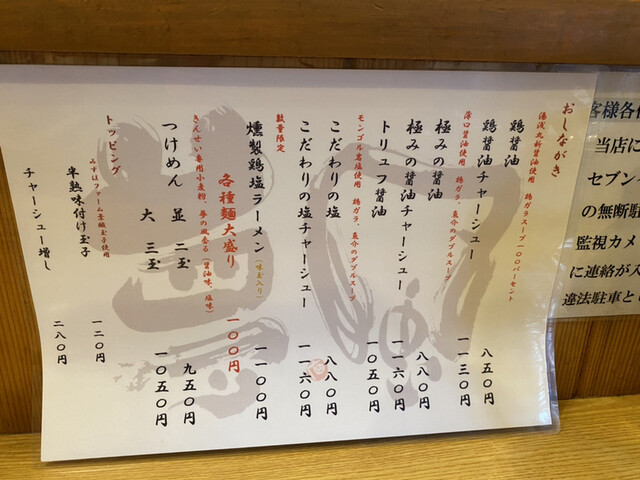 おしながき
湯浅丸新醤油使用 鶏ガラスープ一〇〇パーセント
鶏醤油 八五〇円
鶏醤油チャーシュー 一一三〇円
薄口醤油使用 鶏ガラ、魚介のダブルスープ
極みの醤油 八八〇円
極みの醤油チャーシュー 一一六〇円
トリュフ醤油 一〇五〇円
モンゴル岩塩使用 鶏ガラ、魚介のダブルスープ
こだわりの塩 八八〇円
こだわりの塩チャーシュー 一一六〇円
数量限定
燻製鶏塩ラーメン(味玉入り) 一一〇〇円
各種麺大盛り 一〇〇円
きんせい専用小麦粉、夢の風香る(醤油味、塩味)
つけめん 並 二玉 九五〇円
大 三玉 一〇五〇円
トッピング
みずほファーム
使用
半熟味付け玉子 一二〇円
チャーシュー増し 二八〇円
客様各位
当店に
セブン
の無断駐
監視カメ
に連絡が入
違法駐車と